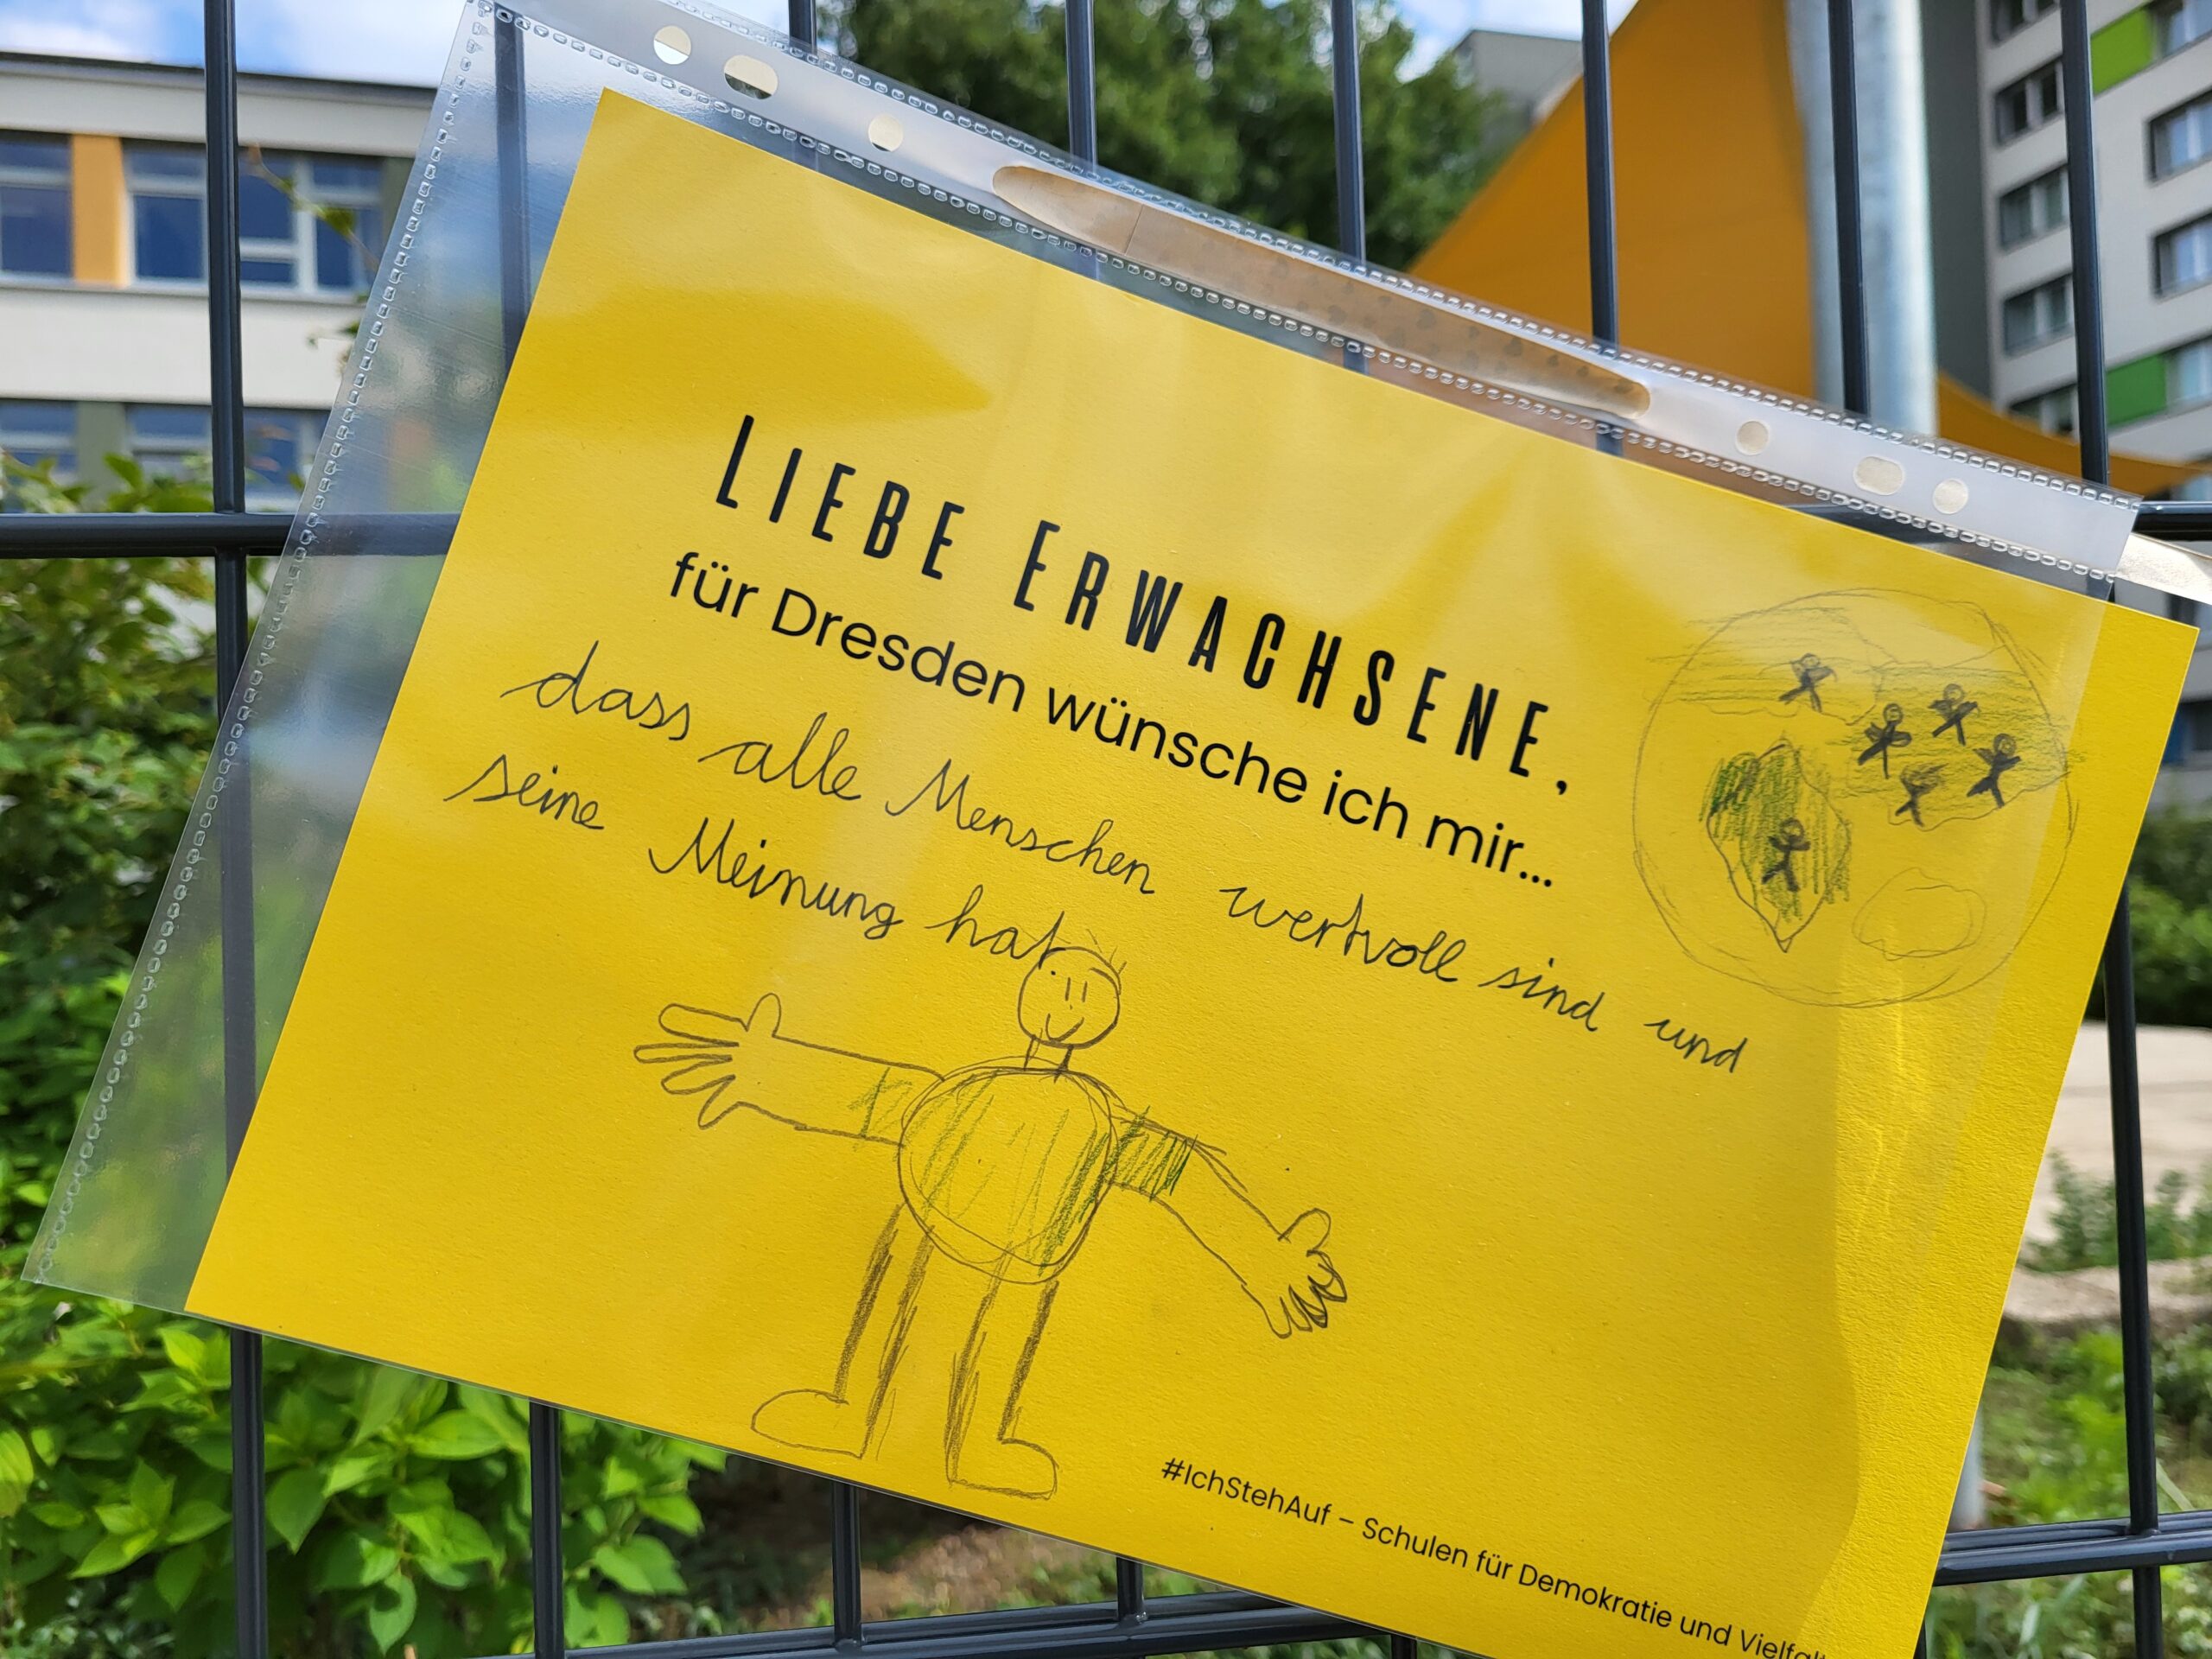 LIEBE ERWACHSENE,
für Dresden wünsche ich mir...
dass alle Menschen wertvoll sind und
seine Meinung hat.
#IchStehAuf – Schulen für Demokratie und Vielfalt